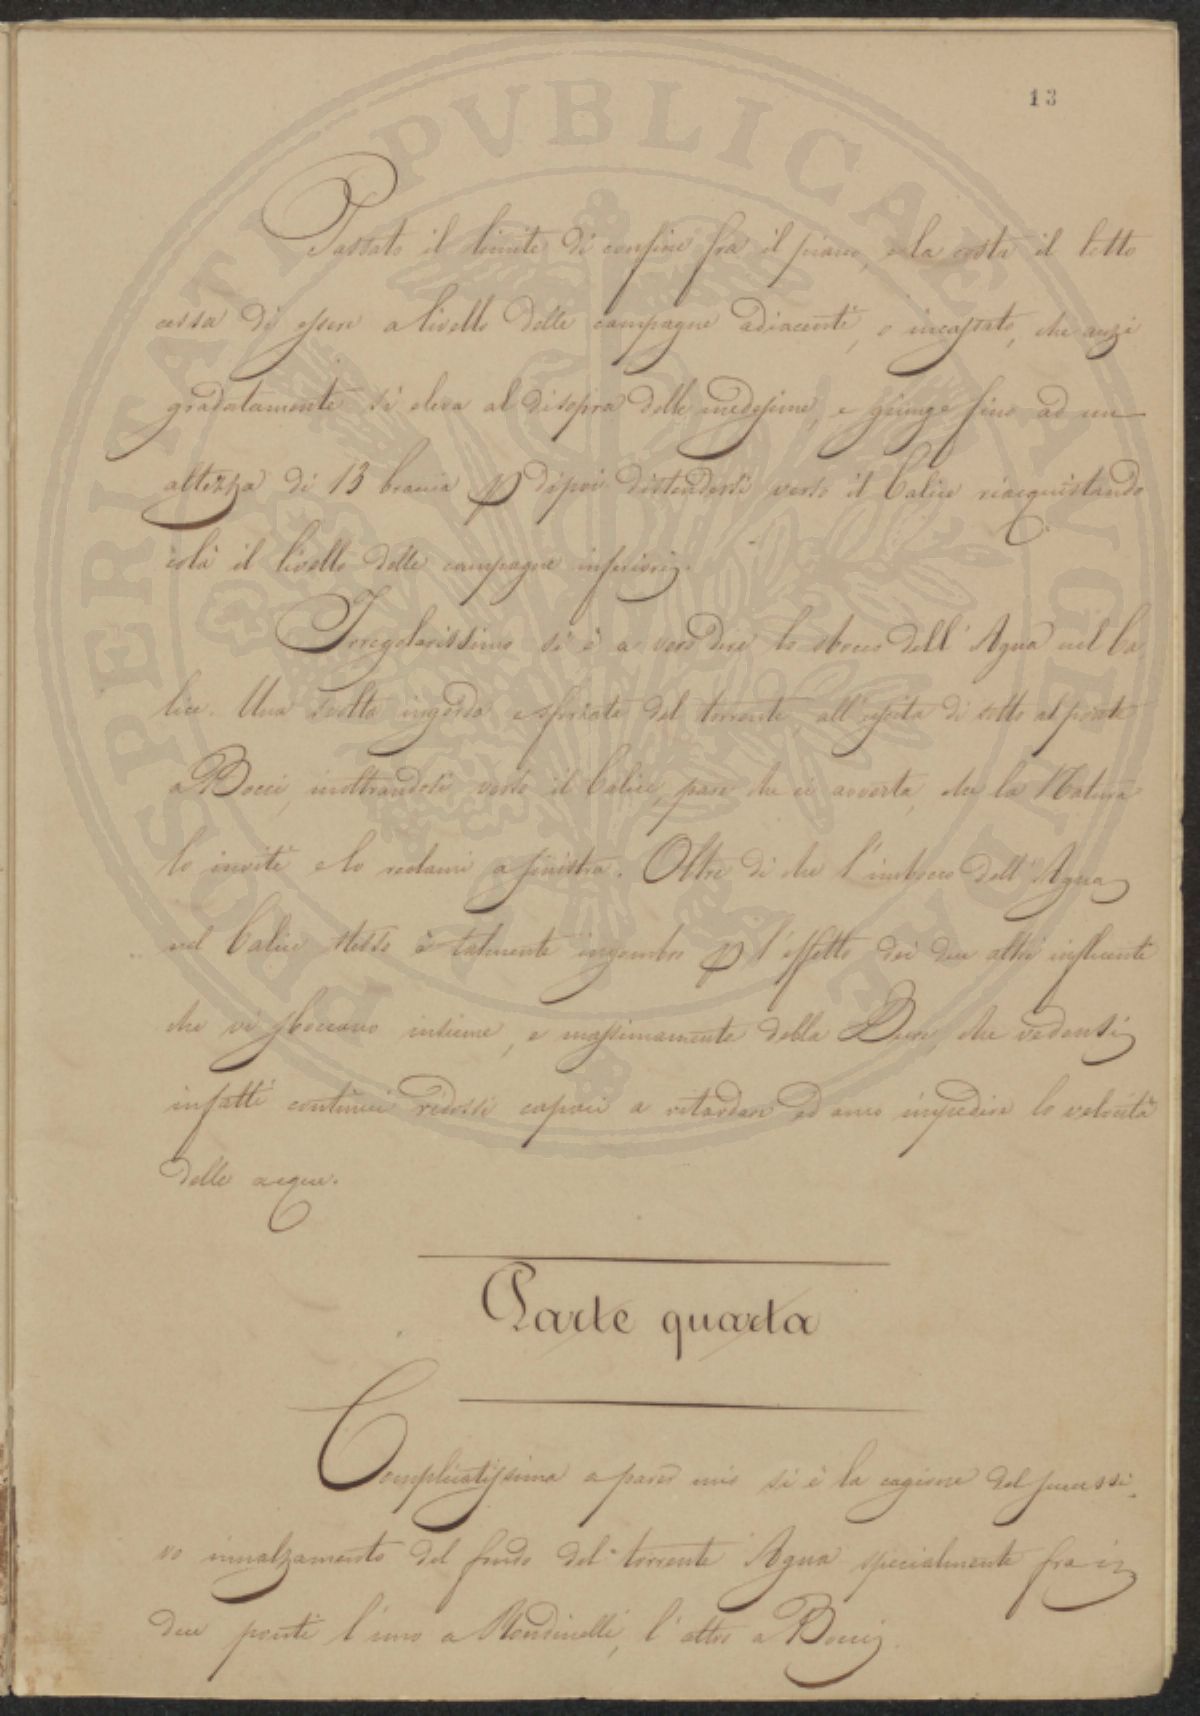 13
Passato il limite di confine fra il piano, e la costa il letto
cessa di essere a livello delle campagne adiacenti, o incassato, che anzi
gradatamente si eleva al disopra delle medesime, e giunge fino ad un
altezza di 13 braccia p dipoi distendersi verso il Calice riacquistando
colà il livello delle campagne inferiori.
Irregolarissimo si è a vero dire lo sbocco dell' Agna nel Ca
lice. Una svolta ingorda e sforzata del torrente, all' uscita di sotto al ponte
a Bocci, inoltrandosi verso il Calice, pare che ci avverta, che la Natura
lo inviti e lo reclami a sinistra. Oltre di che l' imbocco dell' Agna
nel Calice stesso è talmente ingombro p l' effetto dei due altri influenti
che vi sboccano insieme, e massimamente della Bure, che vedonsi
infatti continui ridossi capaci a ritardare ed anco impedire la velocità
delle acque.
Parte quarta
Complicatissima a parer mio si è la cagione del successi
vo innalzamento del fondo del torrente Agna specialmente fra i
due ponti l' uno a Rondinelli, l' altro a Bocci.
PROSPERITATI PVBLICAE AVGENDAE